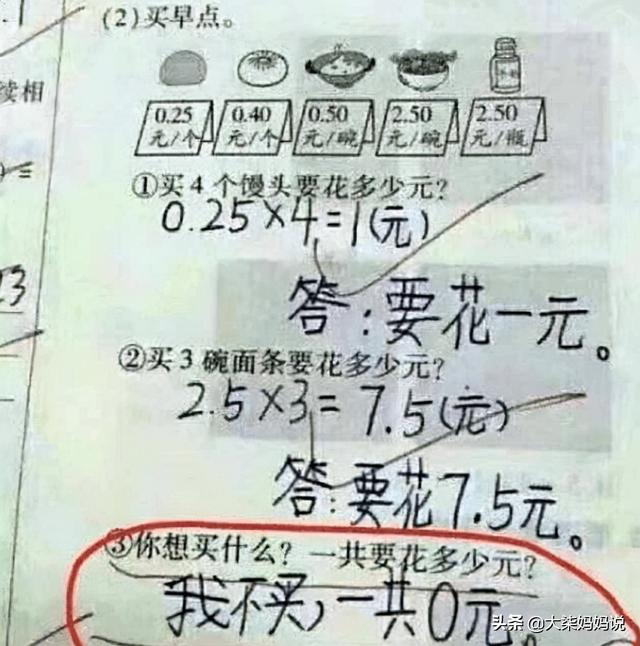 .1
(2)买早点。
续相
0.25 0.40 0.50 2.50 2.50
元/个 元/个 元/碗 元/碗 元/瓶
=
①买4个馒头要花多少元?
0.25×4=1(元)
23
答:要花一元。
②买3碗面条要花多少元?
2.5×3=7.5(元)
答:要花7.5元。
③你想买什么?一共要花多少元?
我不买,一共0元。
头条 @大柒妈妈说